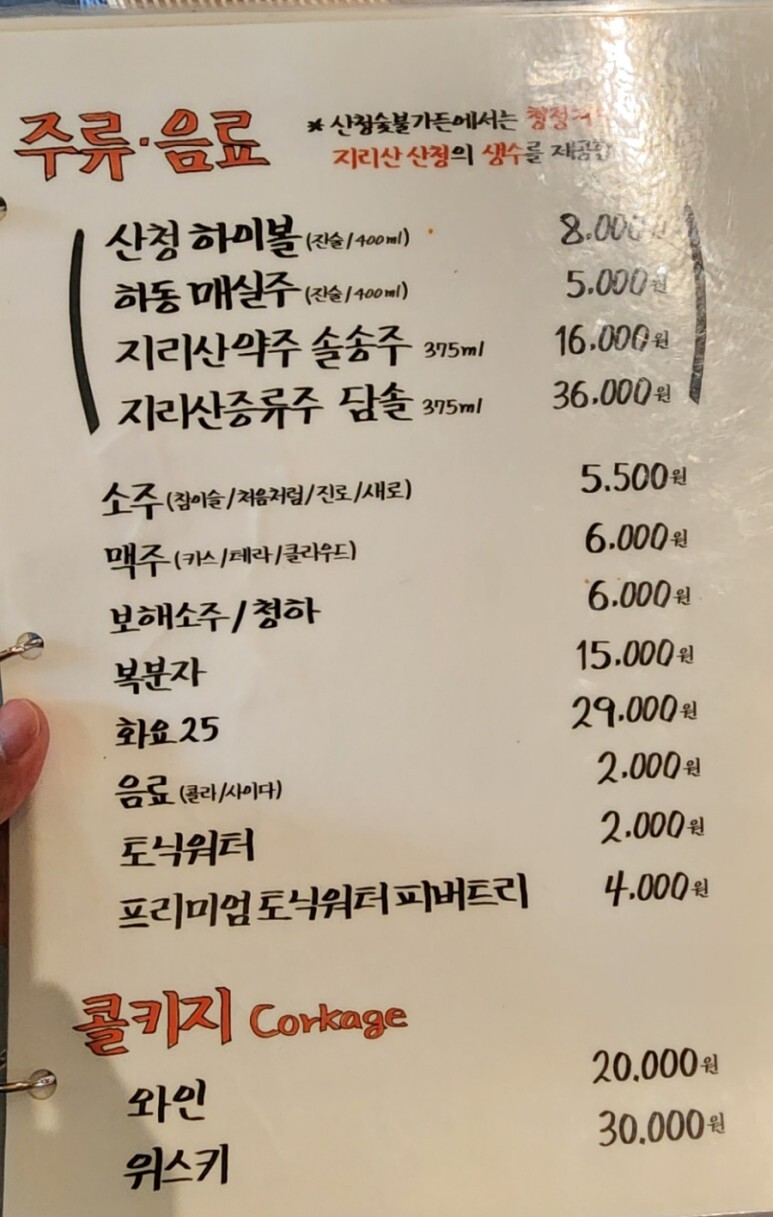 주류·음료
* 산청숯불가든에서는
지리산 산청의 생수를
산청 하이볼 (진술/400ml) 8.000
하동 매실주 (진술/400ml) 5.000원
지리산약주 솔송주 375ml 16.000원
지리산증류주 담솔 375ml 36.000원
소주 (참이슬/처음처럼/진로/새로) 5.500원
맥주 (카스/테라/클라우드) 6.000원
보해소주/청하 6.000원
복분자 15.000원
화요25 29.000원
음료 (콜라/사이다) 2.000원
토닉워터 2.000원
프리미엄 토닉워터 피버트리 4.000원
콜키지 Corkage
와인 20.000원
위스키 30.000원